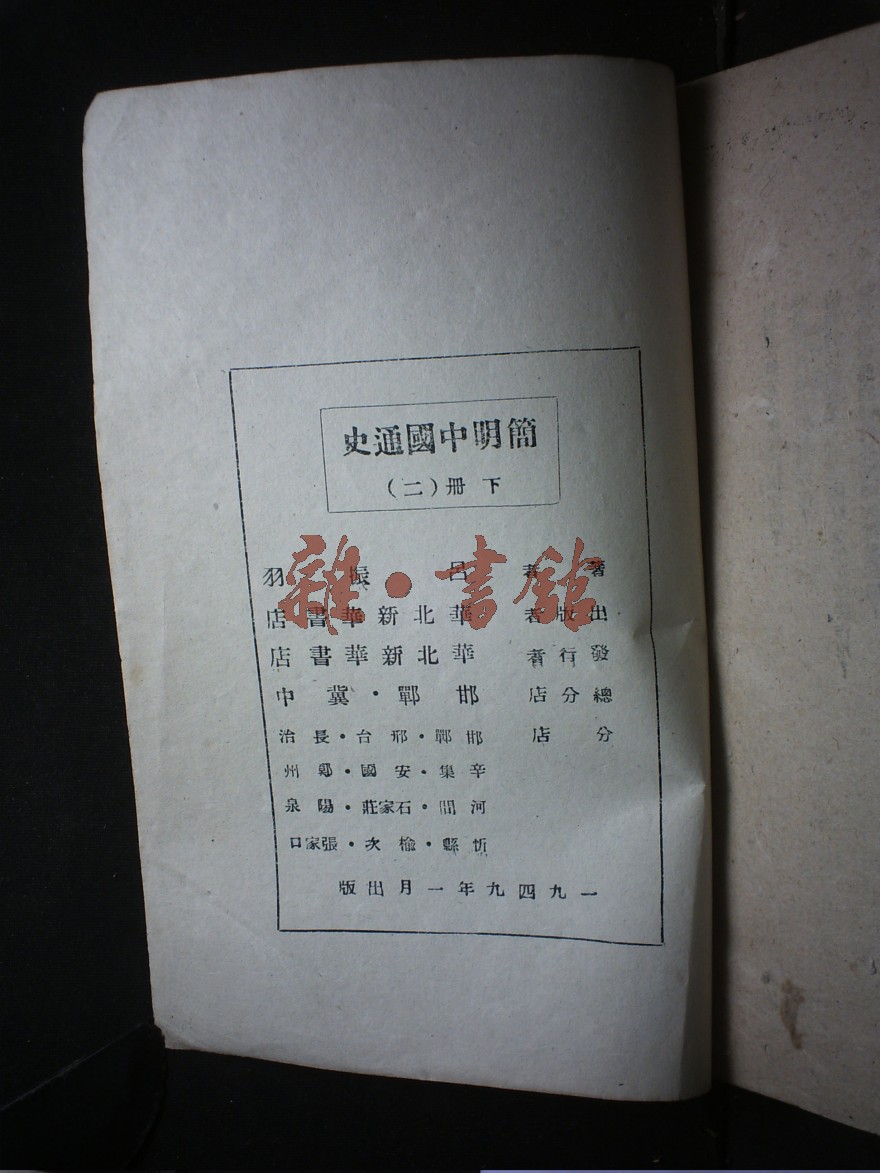 簡明中國通史
下冊（二）
著者 呂振羽
出版者 華北新華書店
發行者 華北新華書店
總分店 邯鄲·冀中
分店 邯鄲·邢台·長治
辛集·安國·鄭州
河間·石家莊·陽泉
忻縣·榆次·張家口
一九四九年一月出版
雜·書館